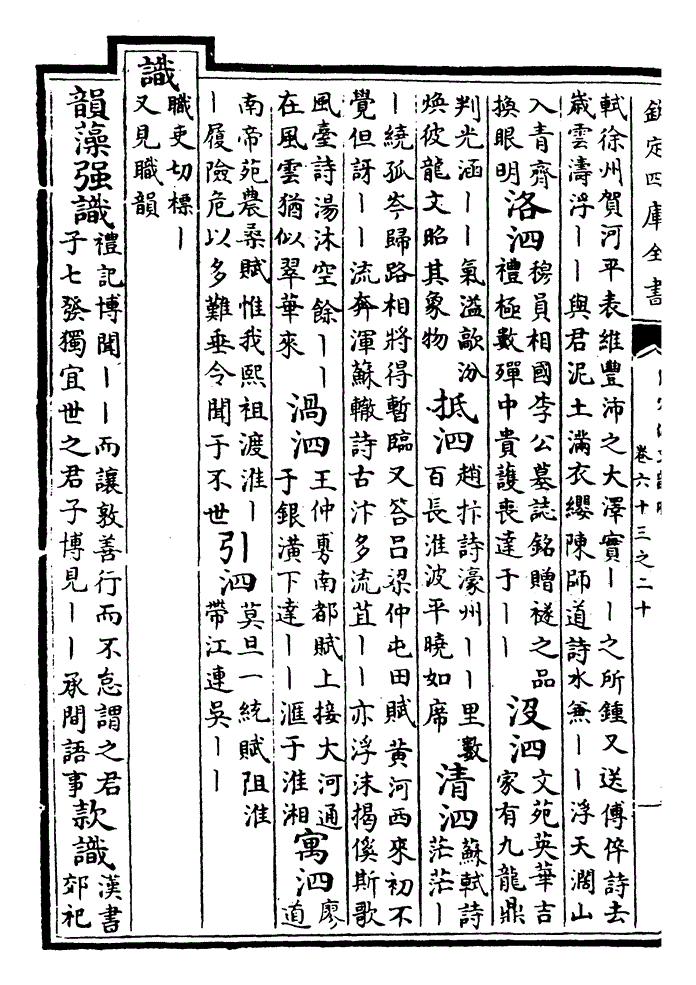 欽定四庫全書
卷六十三之二十
軾徐州賀河平表維豐沛之大澤實丨丨之所鍾又送傅倅詩去
嵗雲濤浮丨丨與君泥土滿衣纓陳師道詩水兼丨丨浮天濶山
入青齊
換眼明
洛泗
穆員相國李公墓誌銘贈禭之品
禮極數殫中貴護喪達于丨丨
沒泗
文苑英華吉
家有九龍鼎
判光涵丨丨氣溢歊汾
煥彼龍文昭其象物
抵泗
趙抃詩濠州丨丨里數
百長淮波平曉如席
清泗
蘇軾詩
茫茫丨
丨繞孤岑歸路相將得暫臨又答呂梁仲屯田賦黃河西來初不
覺但訝丨丨流奔渾蘇轍詩古汴多流苴丨丨亦浮沫揭傒斯歌
風臺詩湯沐空餘丨丨
在風雲猶似翠華來
渦泗
王仲旉南都賦上接大河通
于銀潢下達丨丨滙于淮湘
寓泗
廖
道
南帝苑農桑賦惟我熙祖渡淮丨
丨履險危以多難垂令聞于不世
引泗
莫旦一統賦阻淮
帶江連吳丨丨
識
職吏切標丨
又見職韻
韻藻强識
禮記博聞丨丨而讓敦善行而不怠謂之君
子七發獨宜世之君子博見丨丨承間語事
款識
漢書
郊祀